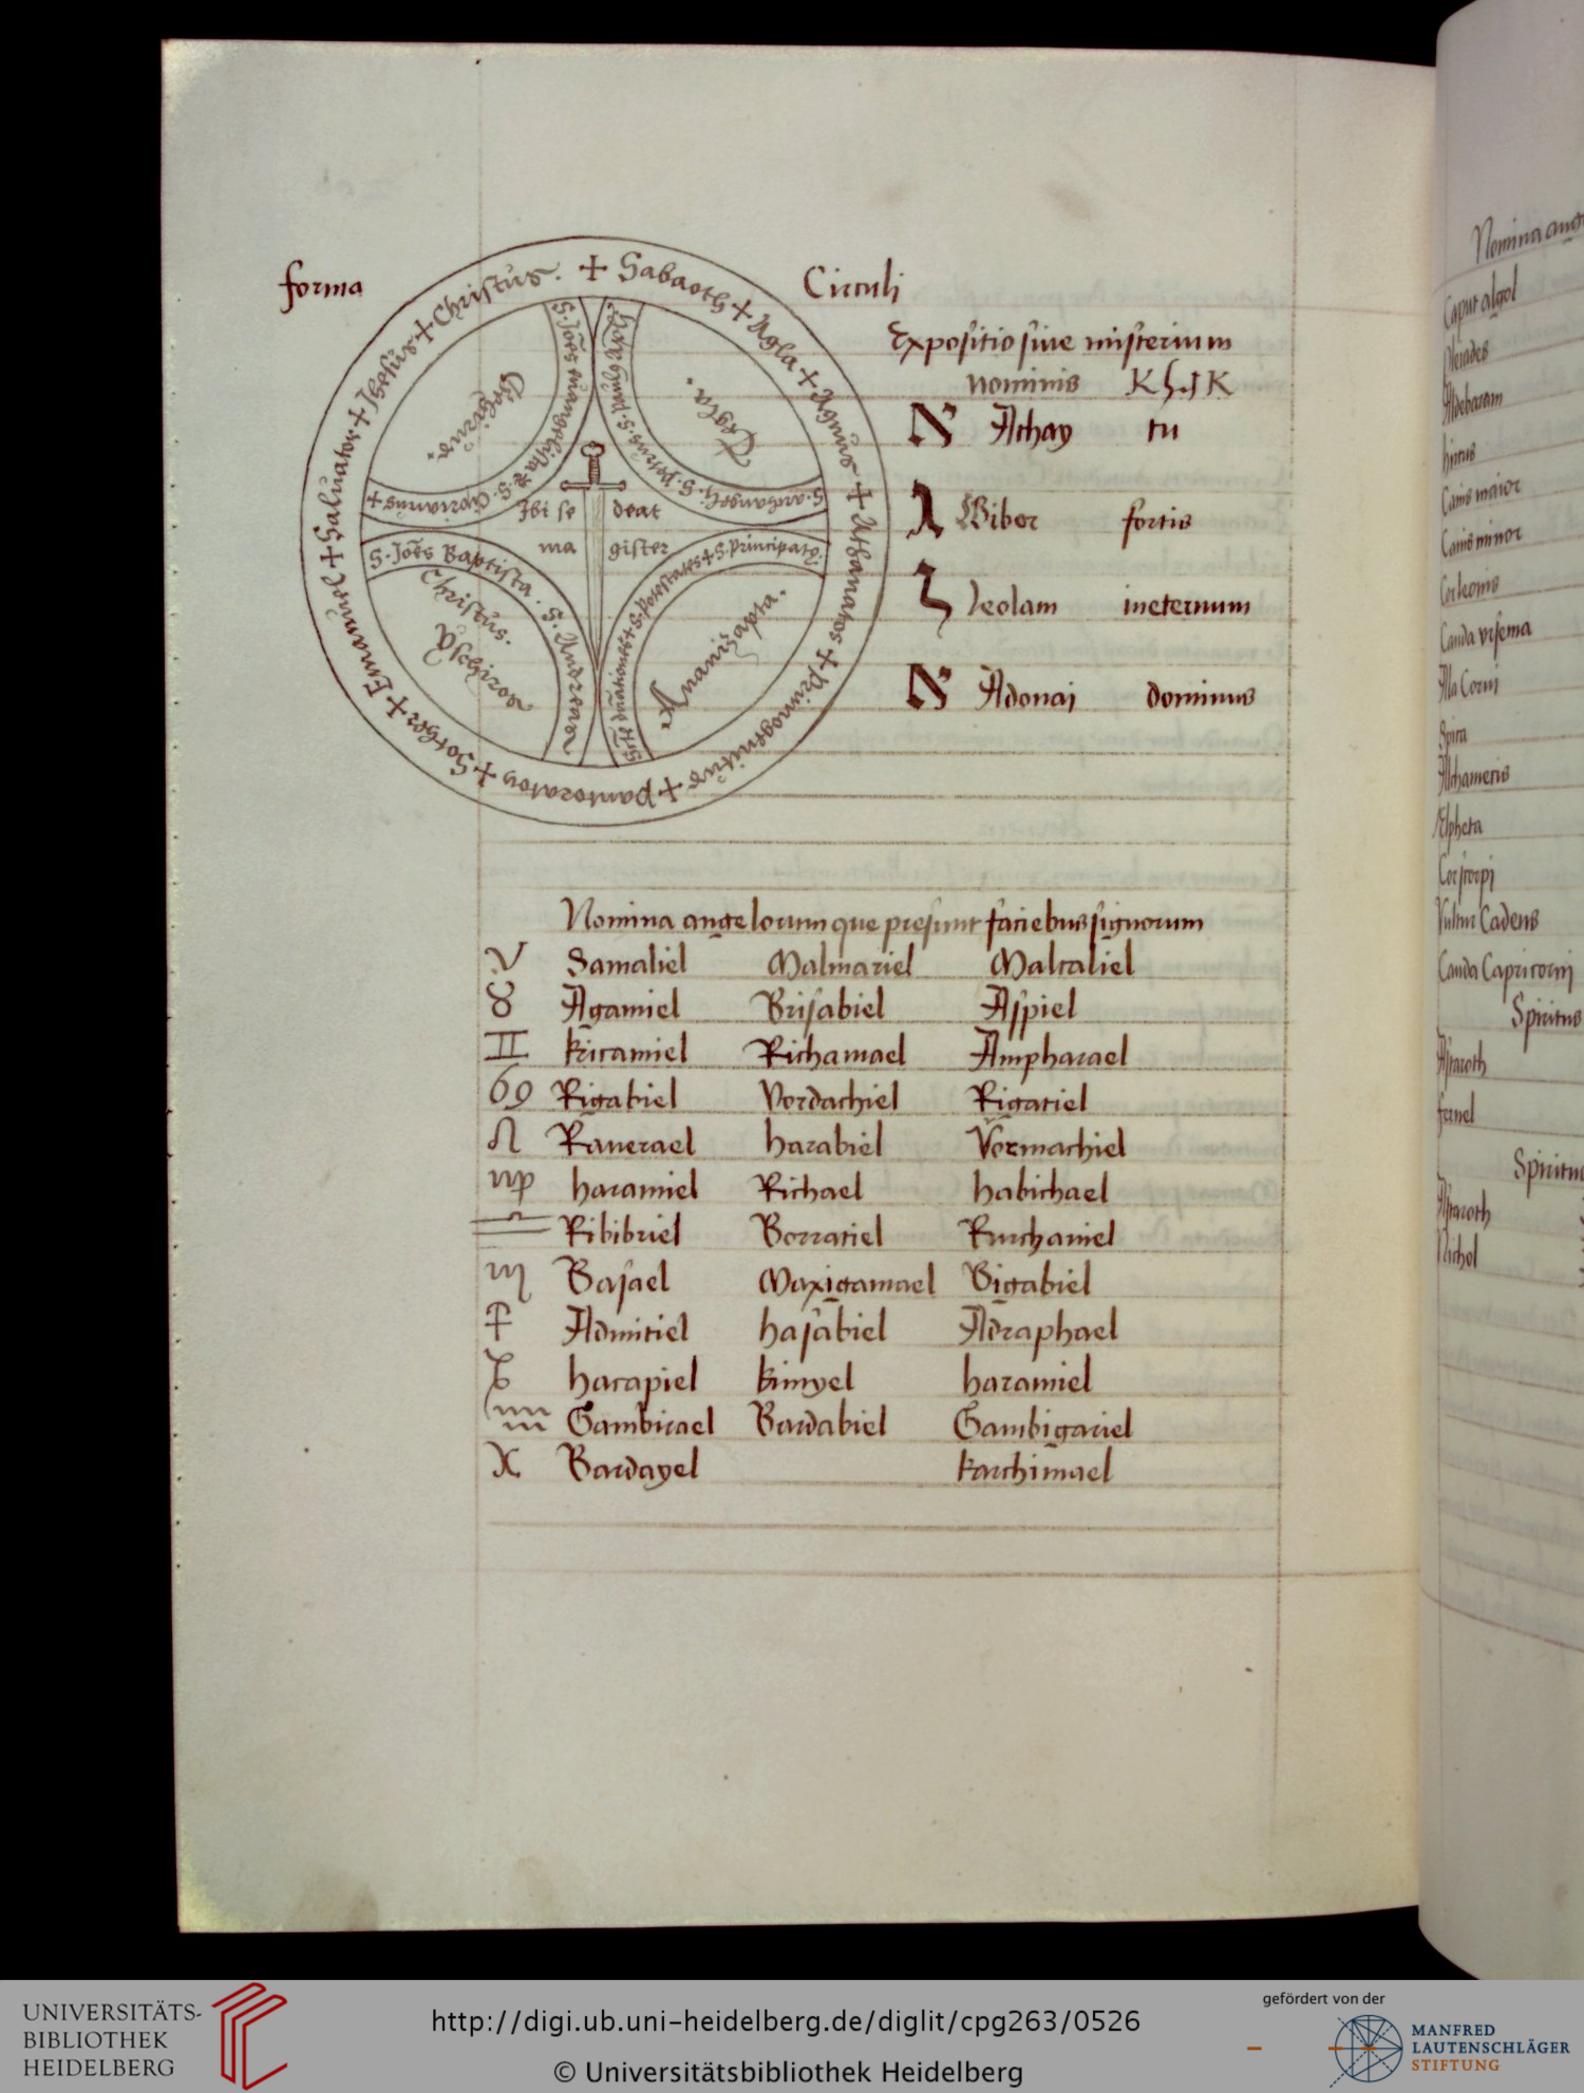 forma Circuli
+ Sabaoth + Agla + Agnus + Athanatos + primogenitus + pantoraton + Sother + Emanuel + Saluator + Jhesus + Christus.
S. Joēs euangelista S. Ciprianus +
S. petrus S. archangeli
S. Joēs Baptista. S. Andreas
potestates + S. principatꝰ
Tegla.
Ananisapta.
Christus.
Jbi se deat
ma gister
Expositio siue misterium
nominis
Athay tu
Gibor fortis
leolam ineternum
Adonaj dominus
Nomina angelorum que presunt faciebus signorum
♈ Samaliel Malmariel Maltaliel
♉ Agamiel Brisabiel Aspiel
♊ kiramiel Richamael Ampharael
♋ Rigabiel Vordachiel Rigatiel
♌ Rauerael harabiel Vormachiel
♍ haramiel Richael habichael
♎ Ribibriel Borratiel Kurchaniel
♏ Basael Maxigamael Bigabiel
♐ Admitiel hasabiel Adraphael
♑ harapiel kimyel haramiel
♒ Gambirael Bardabiel Gambigariel
♓ Bardayel karchimael
Nomina ang
Caput algol
pleiades
Aldebaram
hircus
Canis maior
Canis minor
Cor leonis
Cauda vrsema
Ala Corui
Spica
Alchameris
Elpheta
Cor scorpj
Vultur Cadens
Cauda Capricornj
Spiritus
Astaroth
fernel
Spiritu
Astaroth
UNIVERSITÄTS-
BIBLIOTHEK
HEIDELBERG
http://digi.ub.uni-heidelberg.de/diglit/cpg263/0526
© Universitätsbibliothek Heidelberg
gefördert von der
MANFRED
LAUTENSCHLÄGER
STIFTUNG